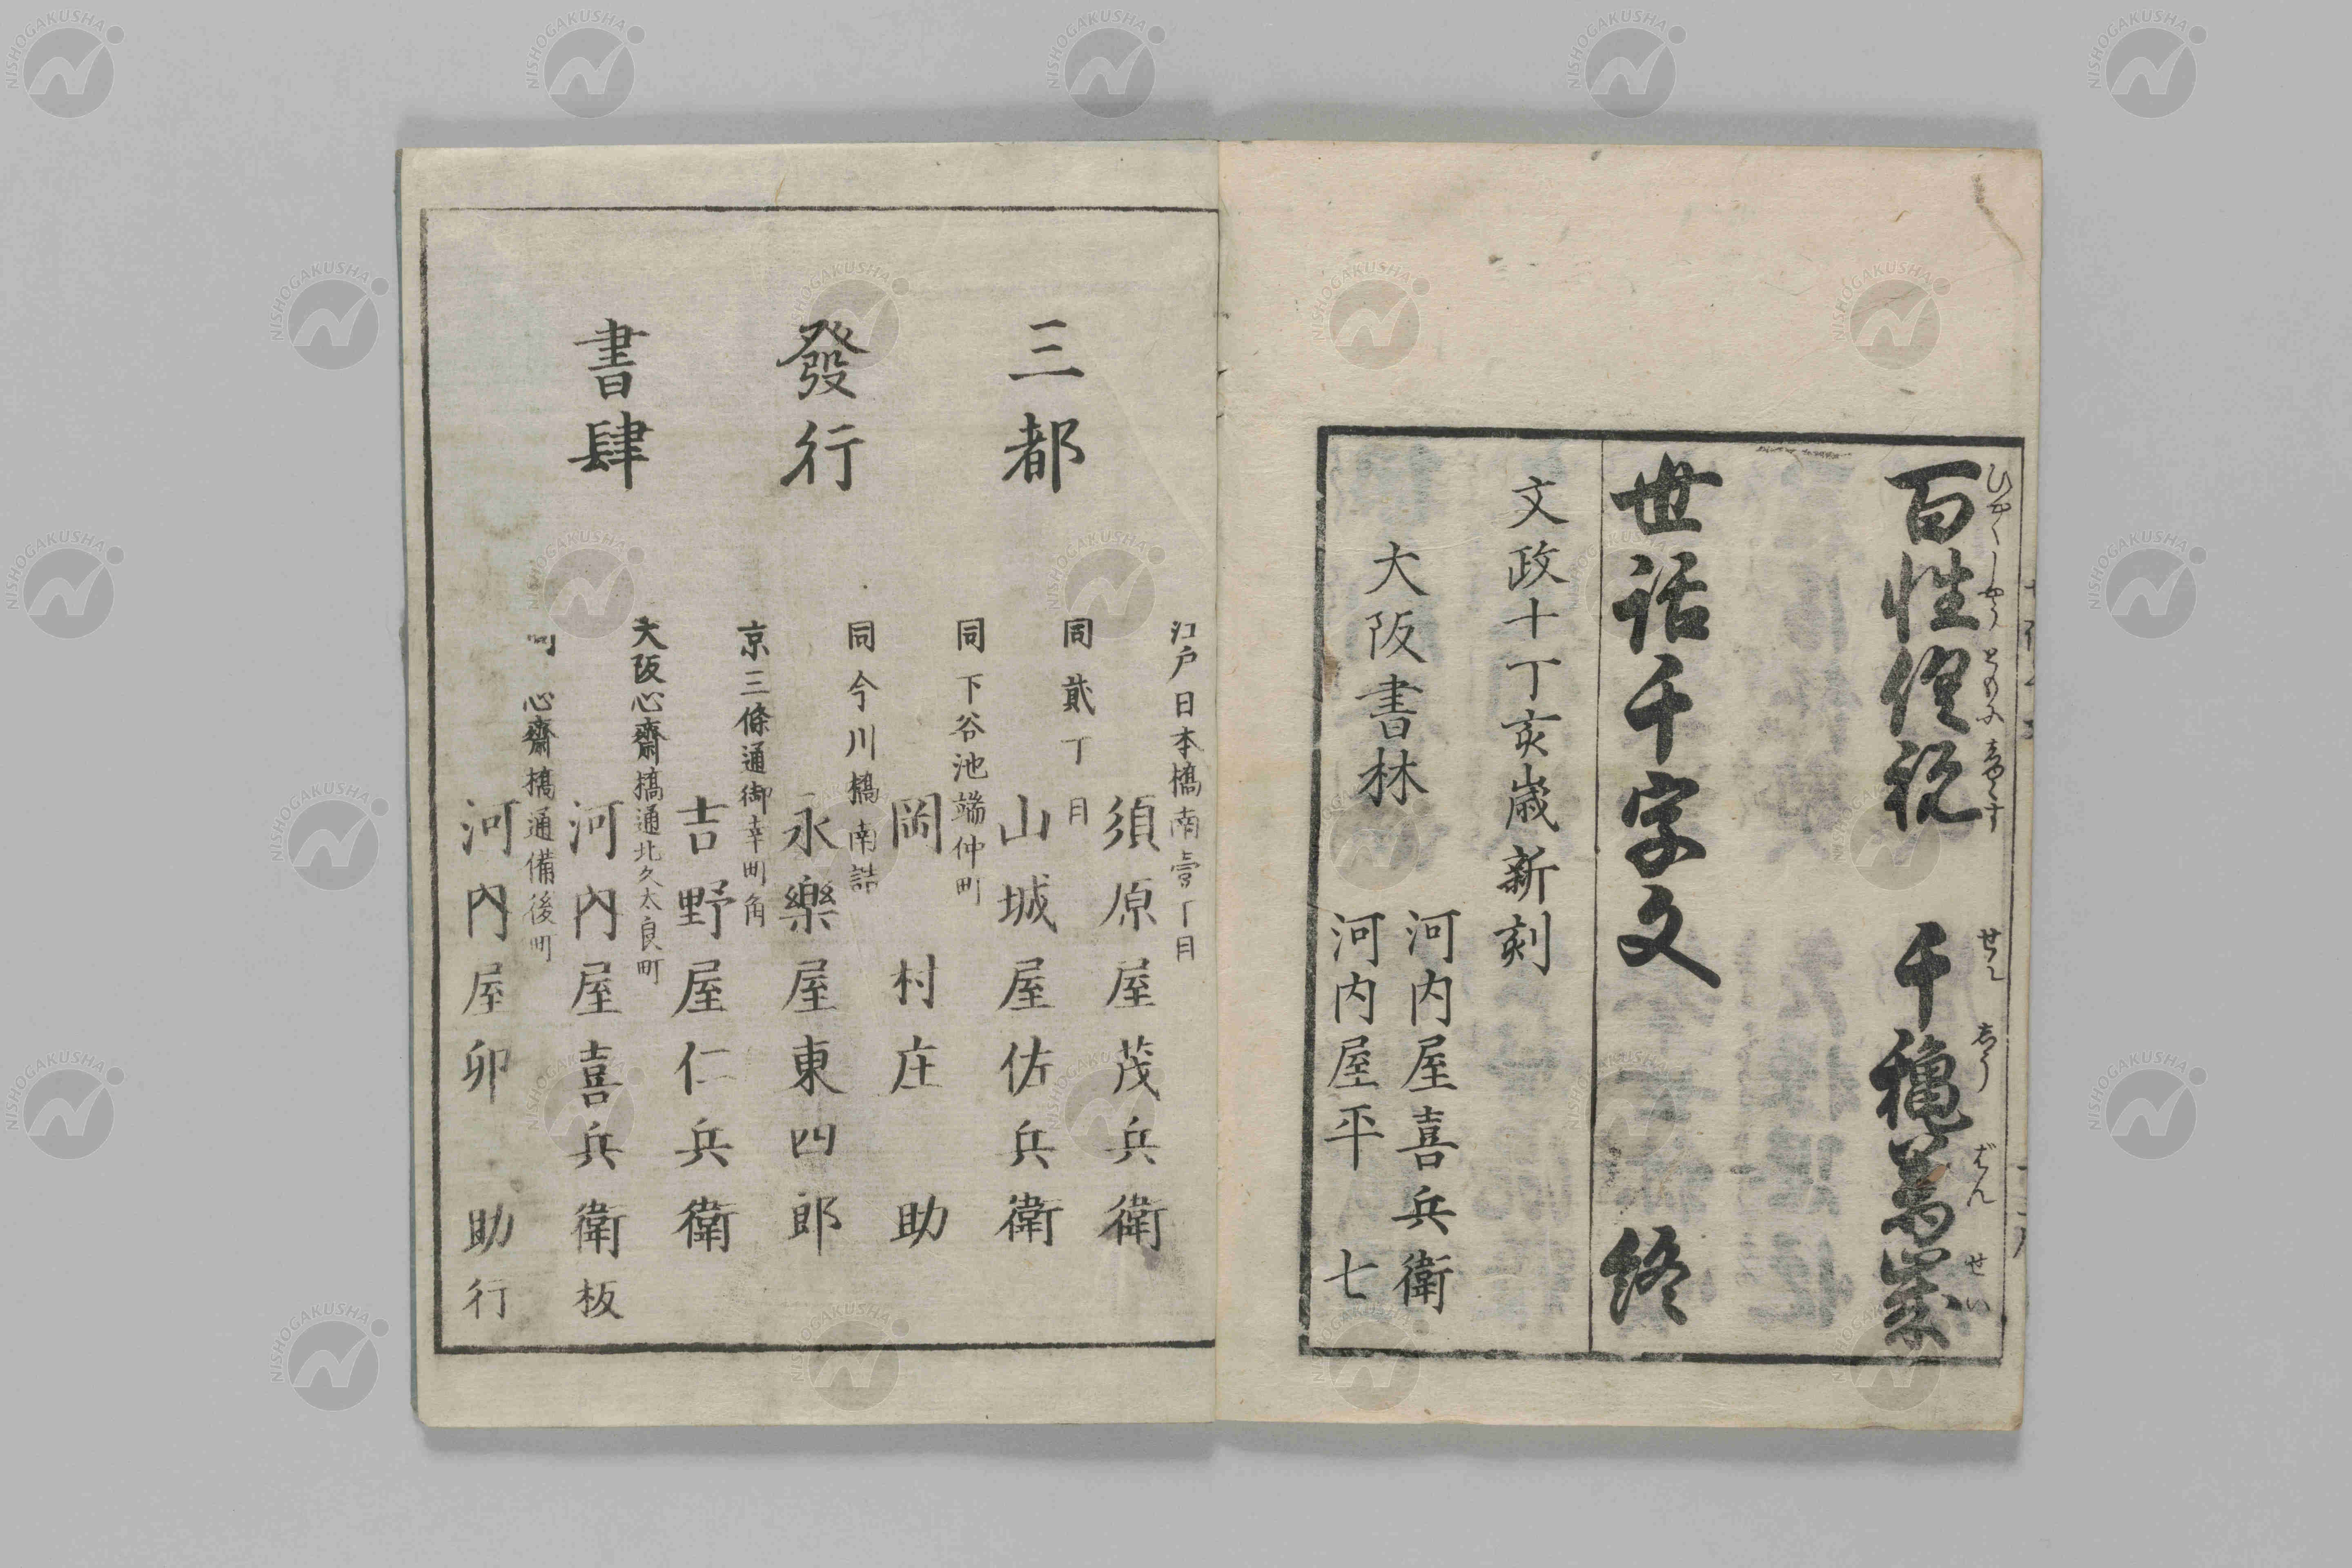 百性倶祝 千穐萬歳
世話千字文 終
文政十丁亥歳新刻
大阪書林
河内屋喜兵衛
河内屋平七
三都
發行
書肆
江戸日本橋南壹丁目
須原屋茂兵衛
同貳丁目
山城屋佐兵衛
同下谷池端仲町
岡村庄助
同今川橋南詰
永樂屋東四郎
京三條通御幸町角
吉野屋仁兵衛
大阪心齋橋通北久太良町
河內屋喜兵衛板
同心齋橋通備後町
河內屋卯助行
NISHOGAKUSHA